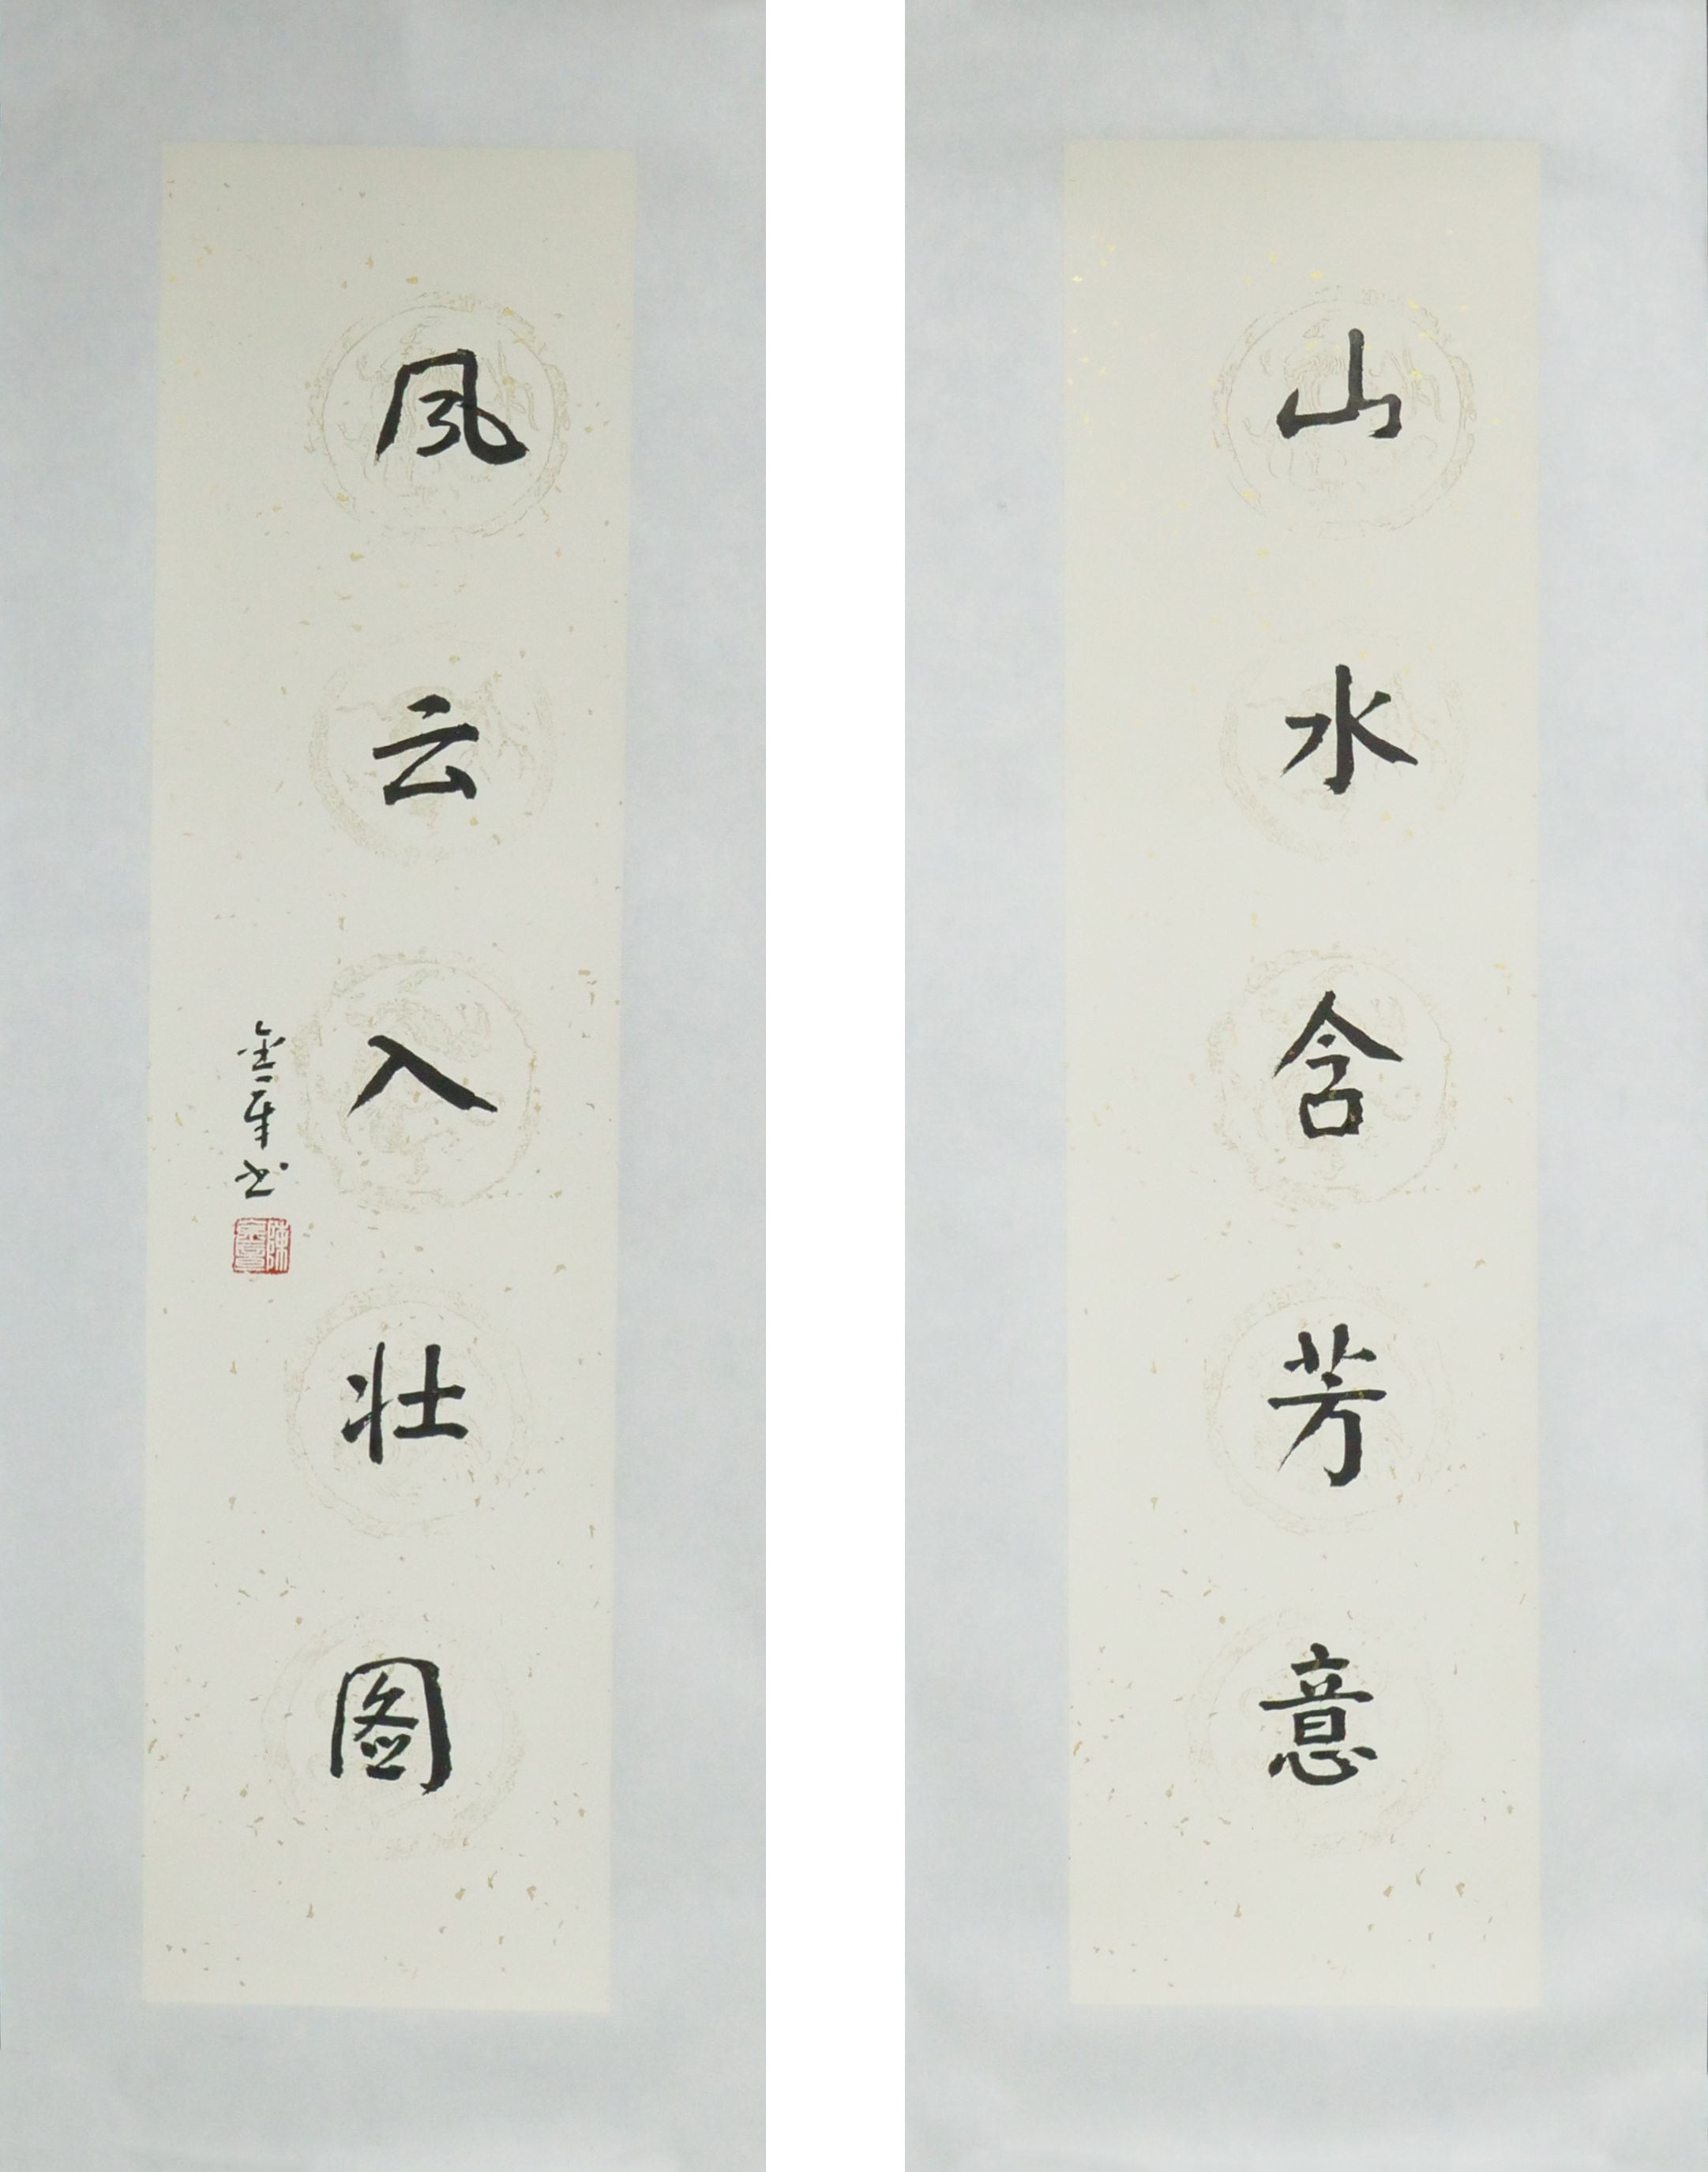 山水含芳意
风云入壮图
金章书